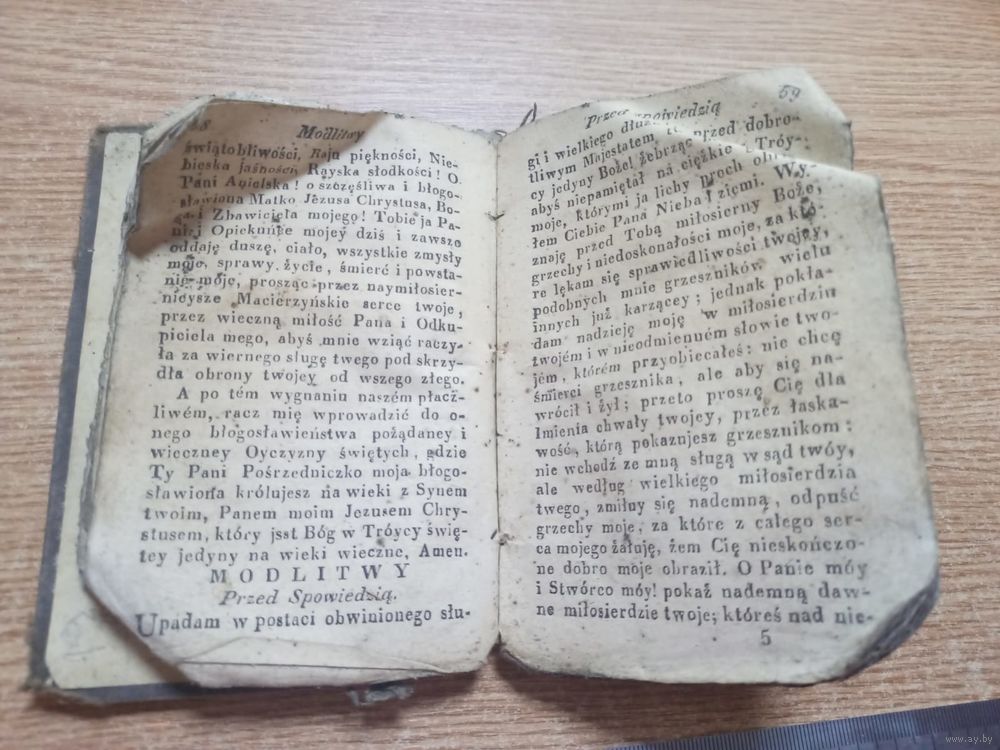 58 Modlitwy
świątobliwości, Raju piękności, Nie-
bieska jasności, Rayska słodkości! O
Pani Anielska! o szczęśliwa i błogo-
sławiona Matko Jezusa Chrystusa, Bo-
ga i Zbawiciela mojego! Tobie ja Pa-
ni i Opiekunce mojey dziś i zawsze
oddaję duszę, ciało, wszystkie zmysły
moje, sprawy, życie, śmierć i powsta-
nie moje, prosząc przez naymiłosier-
nieysze Macierzyńskie serce twoje,
przez wieczną miłość Pana i Odku-
piciela mego, abyś mnie wziąć raczy-
ła za wiernego sługę twego pod skrzy-
dła obrony twojey od wszego złego.
A po tém wygnaniu naszém płacz-
liwém, racz mię wprowadzić do o-
nego błogosławieństwa pożądaney i
wieczney Oyczyzny świętych, gdzie
Ty Pani Pośredniczko moja błogo-
sławiona królujesz na wieki z Synem
twoim, Panem moim Jezusem Chry-
stusem, który jsst Bóg w Tróycy świę-
tey jedyny na wieki wieczne, Amen.
MODLITWY
Przed Spowiedzią.
Upadam w postaci obwinionego słu-
Przed spowiedzią 59
gi i wielkiego
tliwym Majestatem przed dobro-
cy jedyny Boże! żebrząc Tróy-
abyś niepamiętał na ciężkie
moje, którymi ja lichy proch
łem Ciebie Pana Nieba i ziemi. Wy-
znaję przed Tobą miłosierny Boże,
grzechy i niedoskonałości moje, za któ-
re lękam się sprawiedliwości twojey,
podobnych mnie grzeszników wielu
innych już karzącey; jednak pokła-
dam nadzieję moję w miłosierdziu
twojém i w nieodmienném słowie two-
jém, którém przyobiecałeś: nie chcę
śmierci grzesznika, ale aby się na-
wrócił i żył; przeto proszę Cię dla
Imienia chwały twojey, przez łaska-
wość, którą pokazujesz grzesznikom:
nie wchodź ze mną sługą w sąd twóy,
ale według wielkiego miłosierdzia
twego, zmiłuy się nademną, odpuść
grzechy moje, za które z całego ser-
ca mojego żałuję, żem Cię nieskończo-
ne dobro moje obraził. O Panie móy
i Stwórco móy! pokaż nademną daw-
ne miłosierdzie twoje; któreś nad nie-
5
www.ay.by